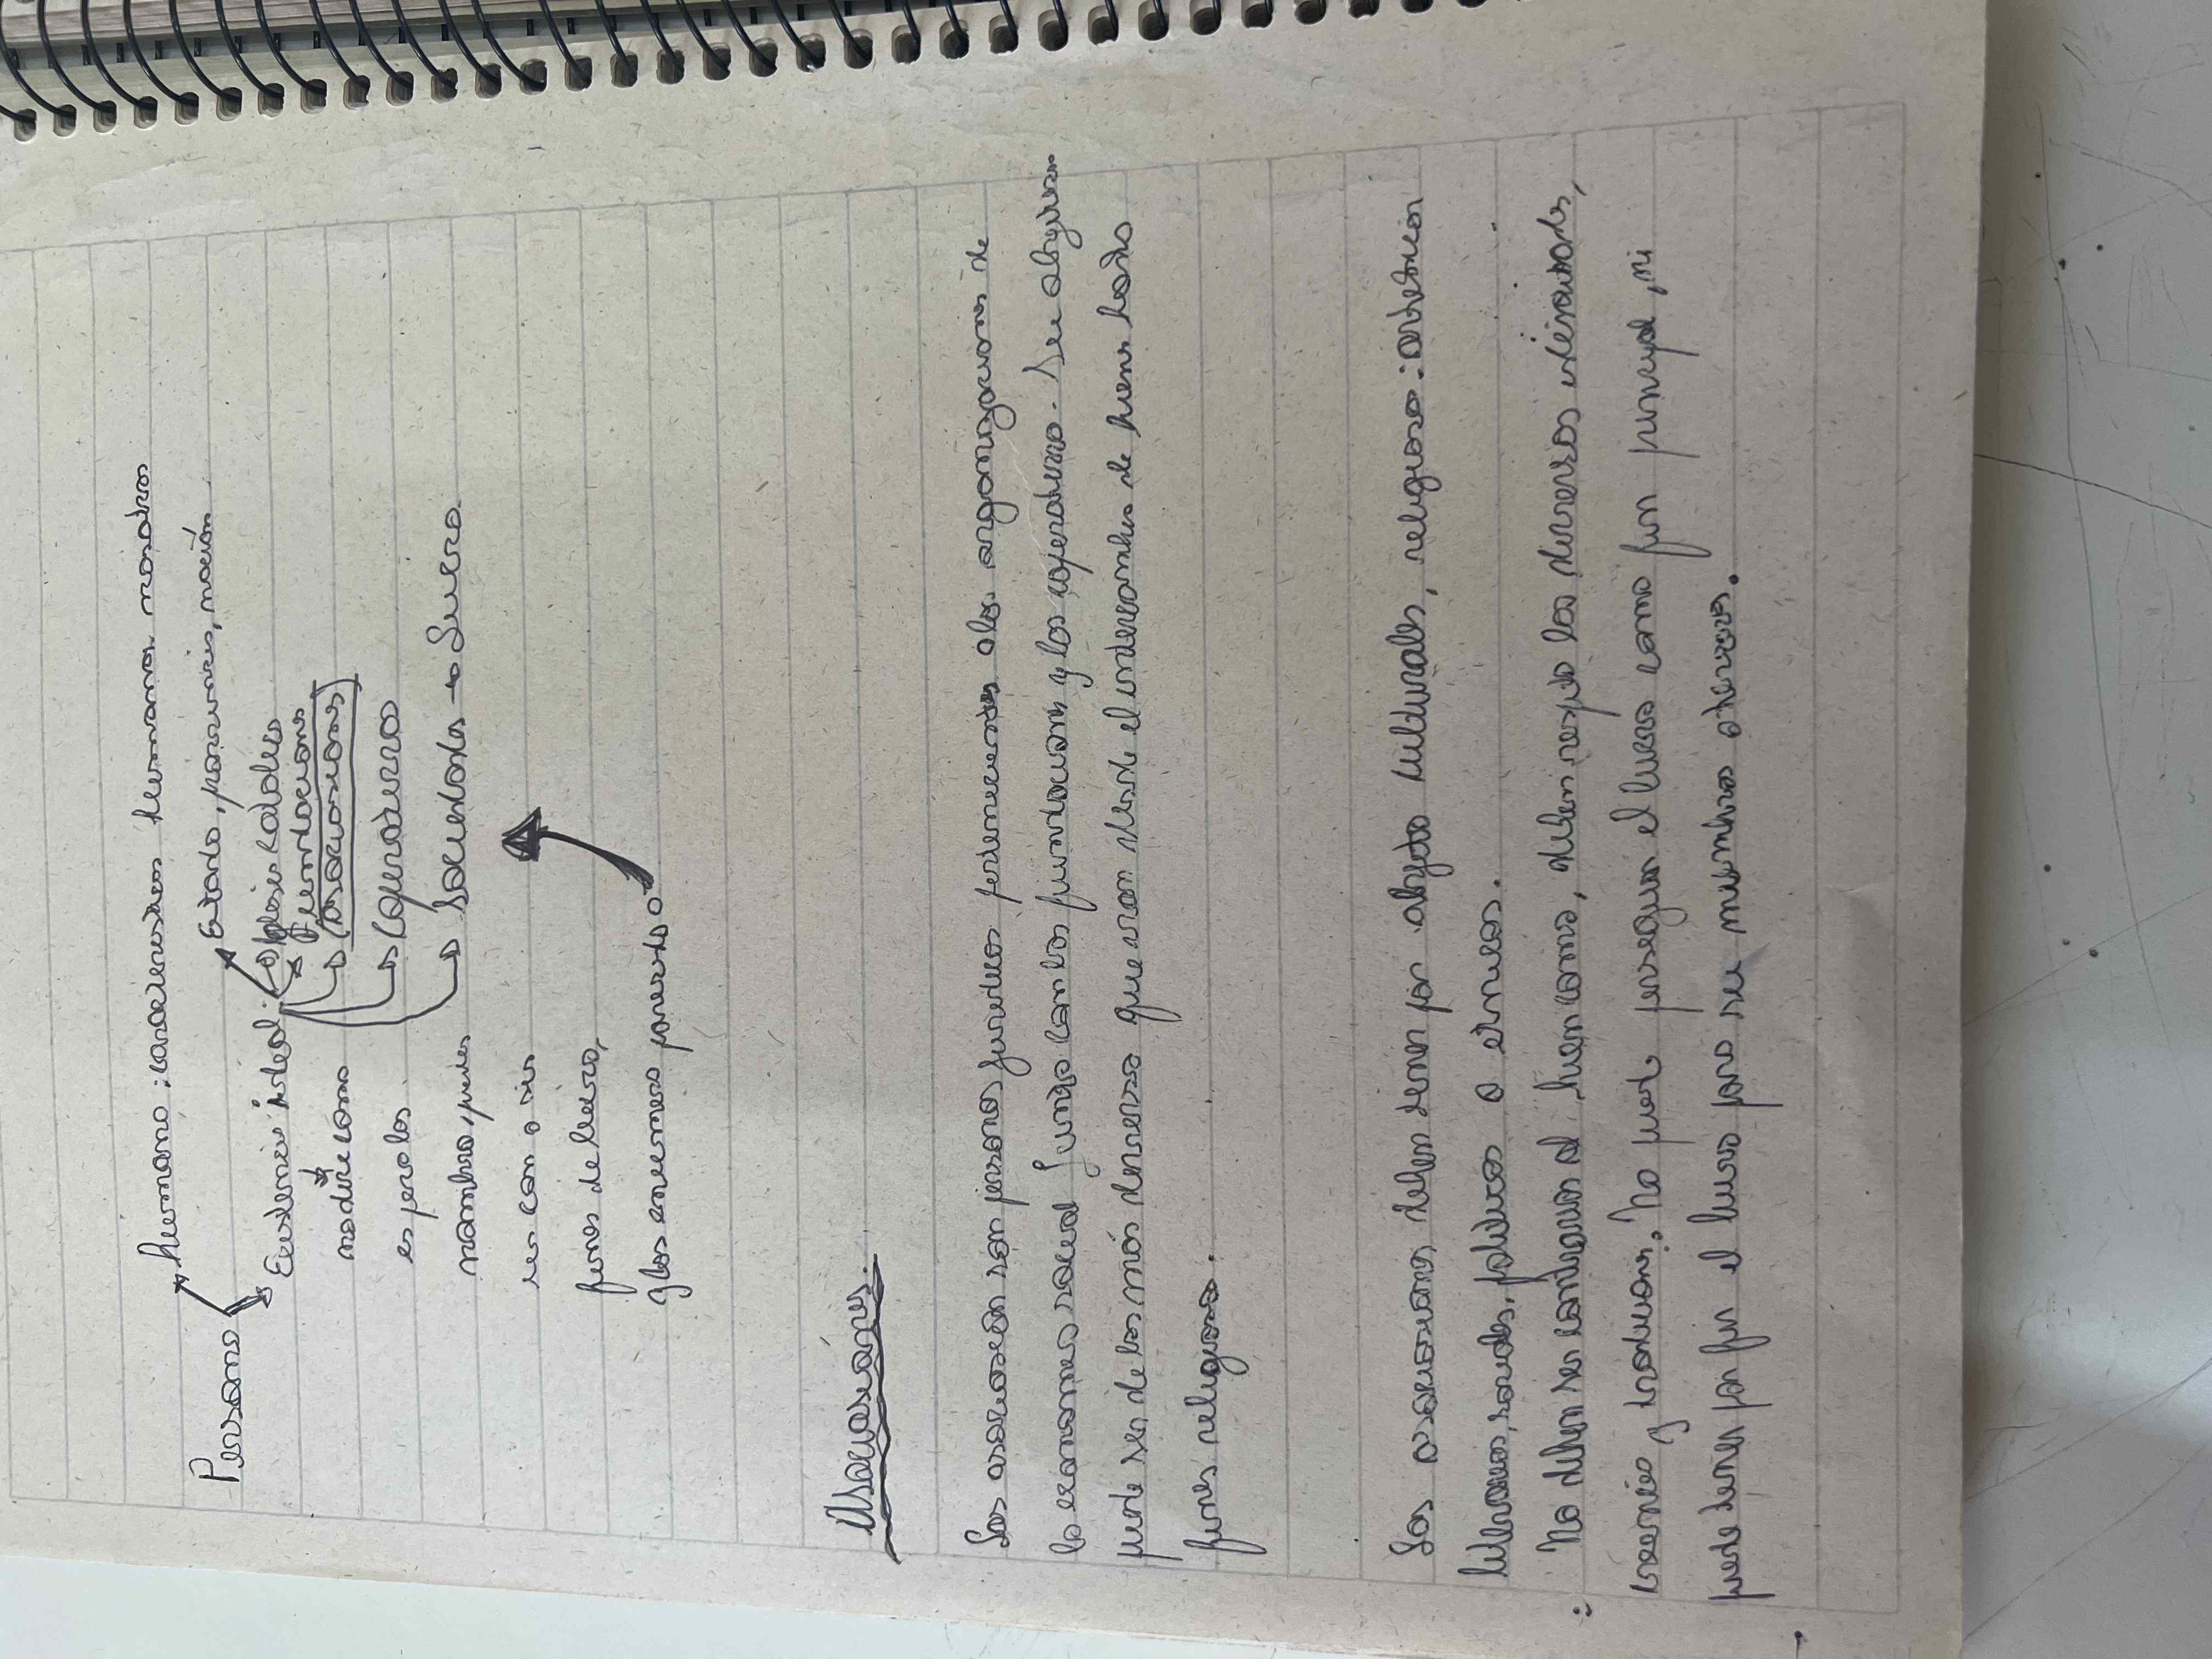 Persona
humana: características humanas nosotros
Existencia ideal:
Estado, provincia, nación
Iglesia Católica
Fundaciones
Asociaciones
Cooperativa
Sociedades → Lucro
nombra, puede
ser con o sin
fines de lucro,
Asociaciones.
Las asociación son personas jurídicas pertenecientes a las organizaciones de
la economía social junto con las fundaciones y las cooperativa. Su objetivo
puede ser de los más diverso que van desde el intercambio de bienes hasta
fines religiosos.
Las asociaciones deben tener por objeto culturales, religioso: artística
literarias, sociales, políticas o étnicas.
No deben ser contrarias al bien común, deben respeto las diversas identidades,
creencias y tradiciones. No puede perseguir el lucro como fin principal, ni
puede tener por fin el lucro para sus miembros o terceros.